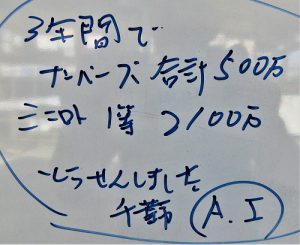 3年間で
ナンバーズ 合計500万
ミニロト 1等 つ100万
とうせんしました
千葉 A.I